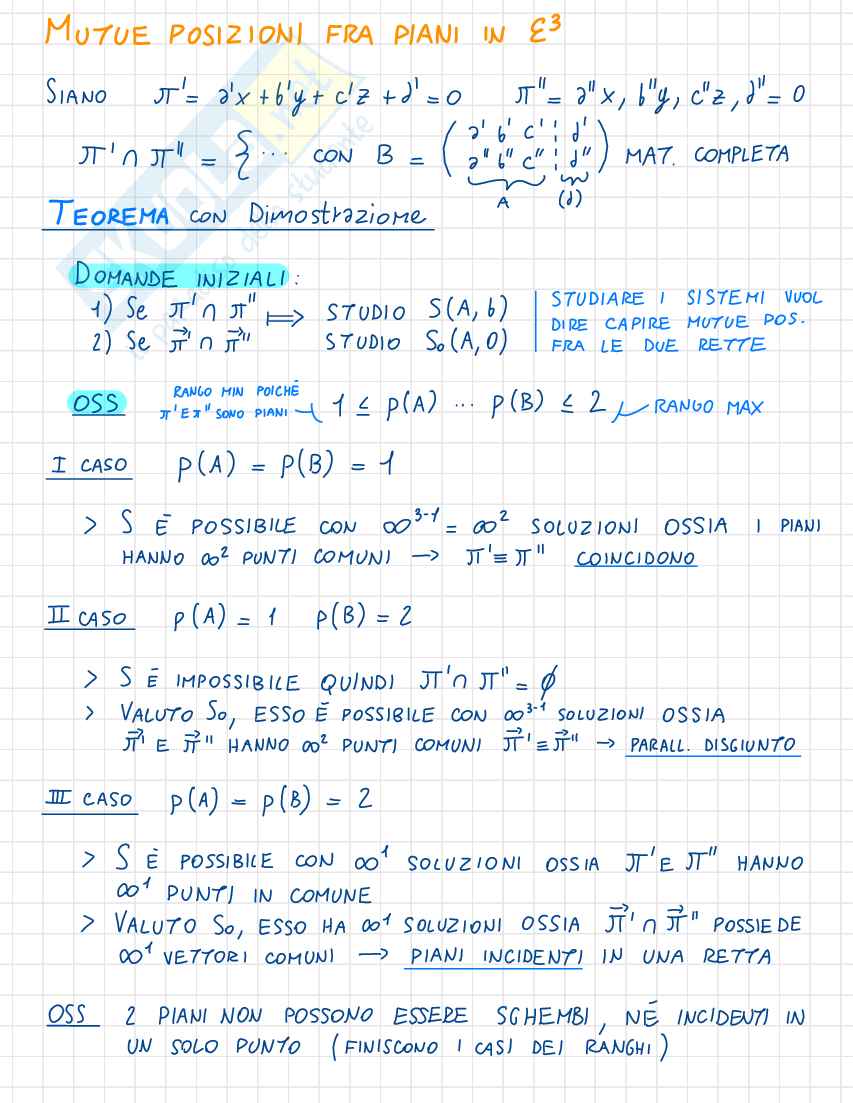 MUTUE POSIZIONI FRA PIANI IN ℰ³
SIANO π' = a'x + b'y + c'z + d' = 0 π'' = a''x, b''y, c''z, d'' = 0
π' ∩ π'' = { ... CON B = ( a' b' c' ¦ d' ) MAT. COMPLETA
( a'' b'' c'' ¦ d'' )
A (d)
TEOREMA CON Dimostrazione
DOMANDE INIZIALI:
1) Se π' ∩ π'' ⟹ STUDIO S(A, b)
2) Se π⃗' ∩ π⃗'' STUDIO S₀(A, 0)
STUDIARE I SISTEMI VUOL
DIRE CAPIRE MUTUE POS.
FRA LE DUE RETTE
OSS RANGO MIN POICHÉ
π' E π'' SONO PIANI 1 ≤ p(A) ... p(B) ≤ 2 RANGO MAX
I CASO p(A) = p(B) = 1
> S È POSSIBILE CON ∞³⁻¹ = ∞² SOLUZIONI OSSIA I PIANI
HANNO ∞² PUNTI COMUNI → π' ≡ π'' COINCIDONO
II CASO p(A) = 1 p(B) = 2
> S È IMPOSSIBILE QUINDI π' ∩ π'' = ∅
> VALUTO S₀, ESSO È POSSIBILE CON ∞³⁻¹ SOLUZIONI OSSIA
π⃗' E π⃗'' HANNO ∞² PUNTI COMUNI π⃗' ≡ π⃗'' → PARALL. DISGIUNTO
III CASO p(A) = p(B) = 2
> S È POSSIBILE CON ∞¹ SOLUZIONI OSSIA π' E π'' HANNO
∞¹ PUNTI IN COMUNE
> VALUTO S₀, ESSO HA ∞¹ SOLUZIONI OSSIA π⃗' ∩ π⃗'' POSSIEDE
∞¹ VETTORI COMUNI → PIANI INCIDENTI IN UNA RETTA
OSS 2 PIANI NON POSSONO ESSERE SGHEMBI, NÉ INCIDENTI IN
UN SOLO PUNTO (FINISCONO I CASI DEI RANGHI)